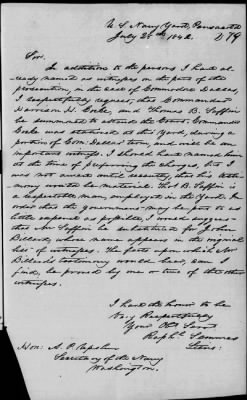 U S Navy Yard, Pensacola
July 26th 1842.
D 79
Sir.
In addition to the persons I have al-
ready named as witnesses on the part of the
prosecution, in the case of Commodore Dallas,
I respectfully request, that Commander
Harrison H. Cocke, and Thomas B. Saffin
be summoned to attend the Court. Commander
Cocke was stationed at this Yard, during a
portion of Com. Dallas' term, and will be an
important witness. I should have named him
at the time of preparing the charges, but I
was not aware until recently, that his testi-
mony would be material. Thos B. Saffin is
a respectable man, employed in the Yard. In
order that the government may be put to as
little expense as possible, I would suggest
that Mr Saffin be substituted for John
Billard, whose name appears in the original
list of witnesses. The facts upon which Mr
Billard's testimony would bear, can I
find, be proved by one or two of the other
witnesses.
I have the honor to be
Very Respectfully
Your Obt Servt
Raph. Semmes
Lieut.
Hon: A. P. Upshur
Secretary of the Navy
Washington.